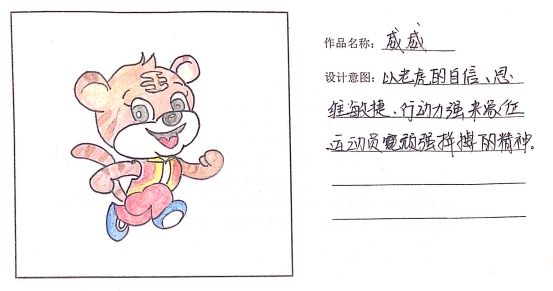 作品名称: 威威
设计意图: 以老虎的自信、思
维敏捷、行动力强来象征
运动员顽强拼搏的精神。